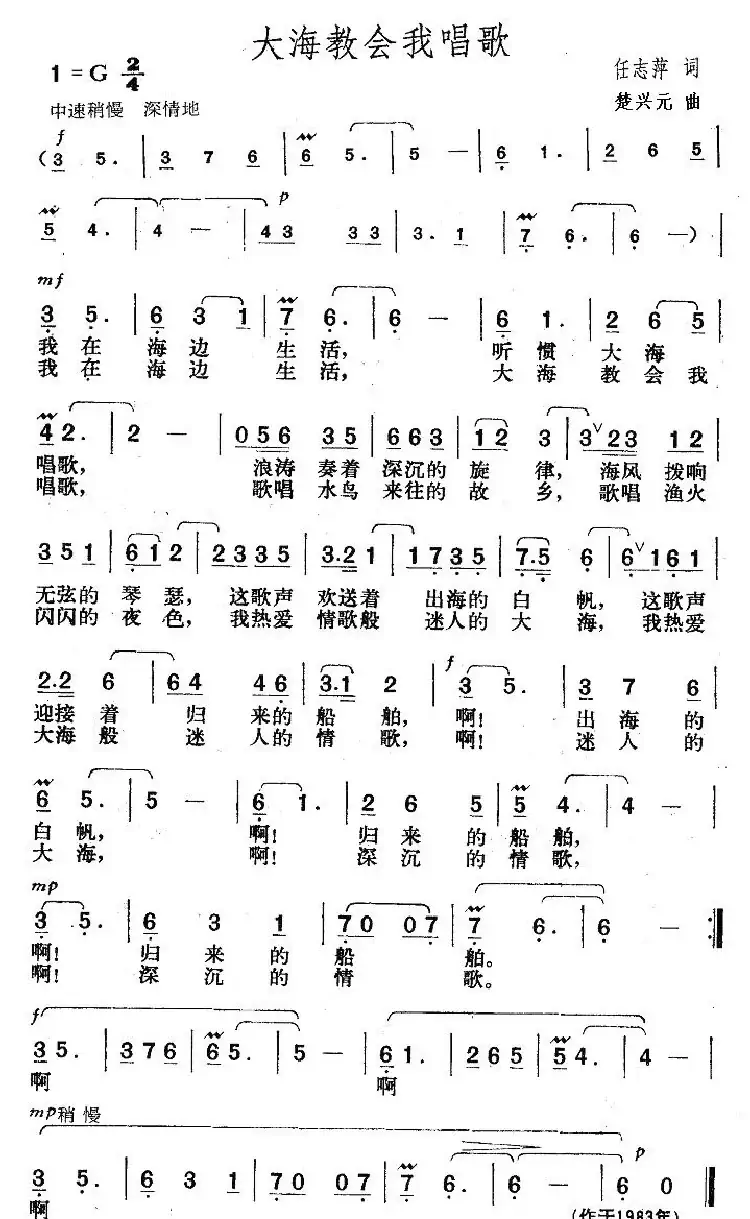 大海教会我唱歌
1=G 2/4
任志萍 词
中速稍慢 深情地
楚兴元 曲
f
(3 5. | 3 7 6 | 6 5. | 5 — | 6 1. | 2 6 5 |
p
5 4. | 4 — | 43 33 | 3. 1 | 7 6. | 6 —) |
mf
3 5. | 6 3 1 | 7 6. | 6 — | 6 1. | 2 6 5 |
我在 海边 生活, 听惯 大海
我在 海边 生活, 大海 教会我
4 2. | 2 — | 056 35 | 663 | 12 3 | 3˅23 12 |
唱歌, 浪涛 奏着 深沉的 旋律, 海风 拨响
唱歌, 歌唱 水鸟 来往的 故乡, 歌唱 渔火
351 | 612 | 2335 | 3.21 | 1735 | 7.5 6 | 6˅161 |
无弦的 琴瑟, 这歌声 欢送着 出海的 白帆, 这歌声
闪闪的 夜色, 我热爱 情歌般 迷人的 大海, 我热爱
f
2.2 6 | 64 46 | 3.1 2 | 3 5. | 3 7 6 |
迎接着 归来的 船舶, 啊! 出海的
大海般 迷人的 情歌, 啊! 迷人的
6 5. | 5 — | 6 1. | 2 6 5 | 5 4. | 4 — |
白帆, 啊! 归来的 船舶,
大海, 啊! 深沉的 情歌,
mp
3 5. | 6 3 1 | 70 07 | 7 6. | 6 — :|
啊! 归来的 船舶。
啊! 深沉的 情歌。
f
35. | 376 | 65. | 5 — | 61. | 265 | 54. | 4 — |
啊 啊
mp稍慢
p
3 5. | 6 3 1 | 70 07 | 7 6. | 6 — | 6 0 ‖
啊
(作于1983年)